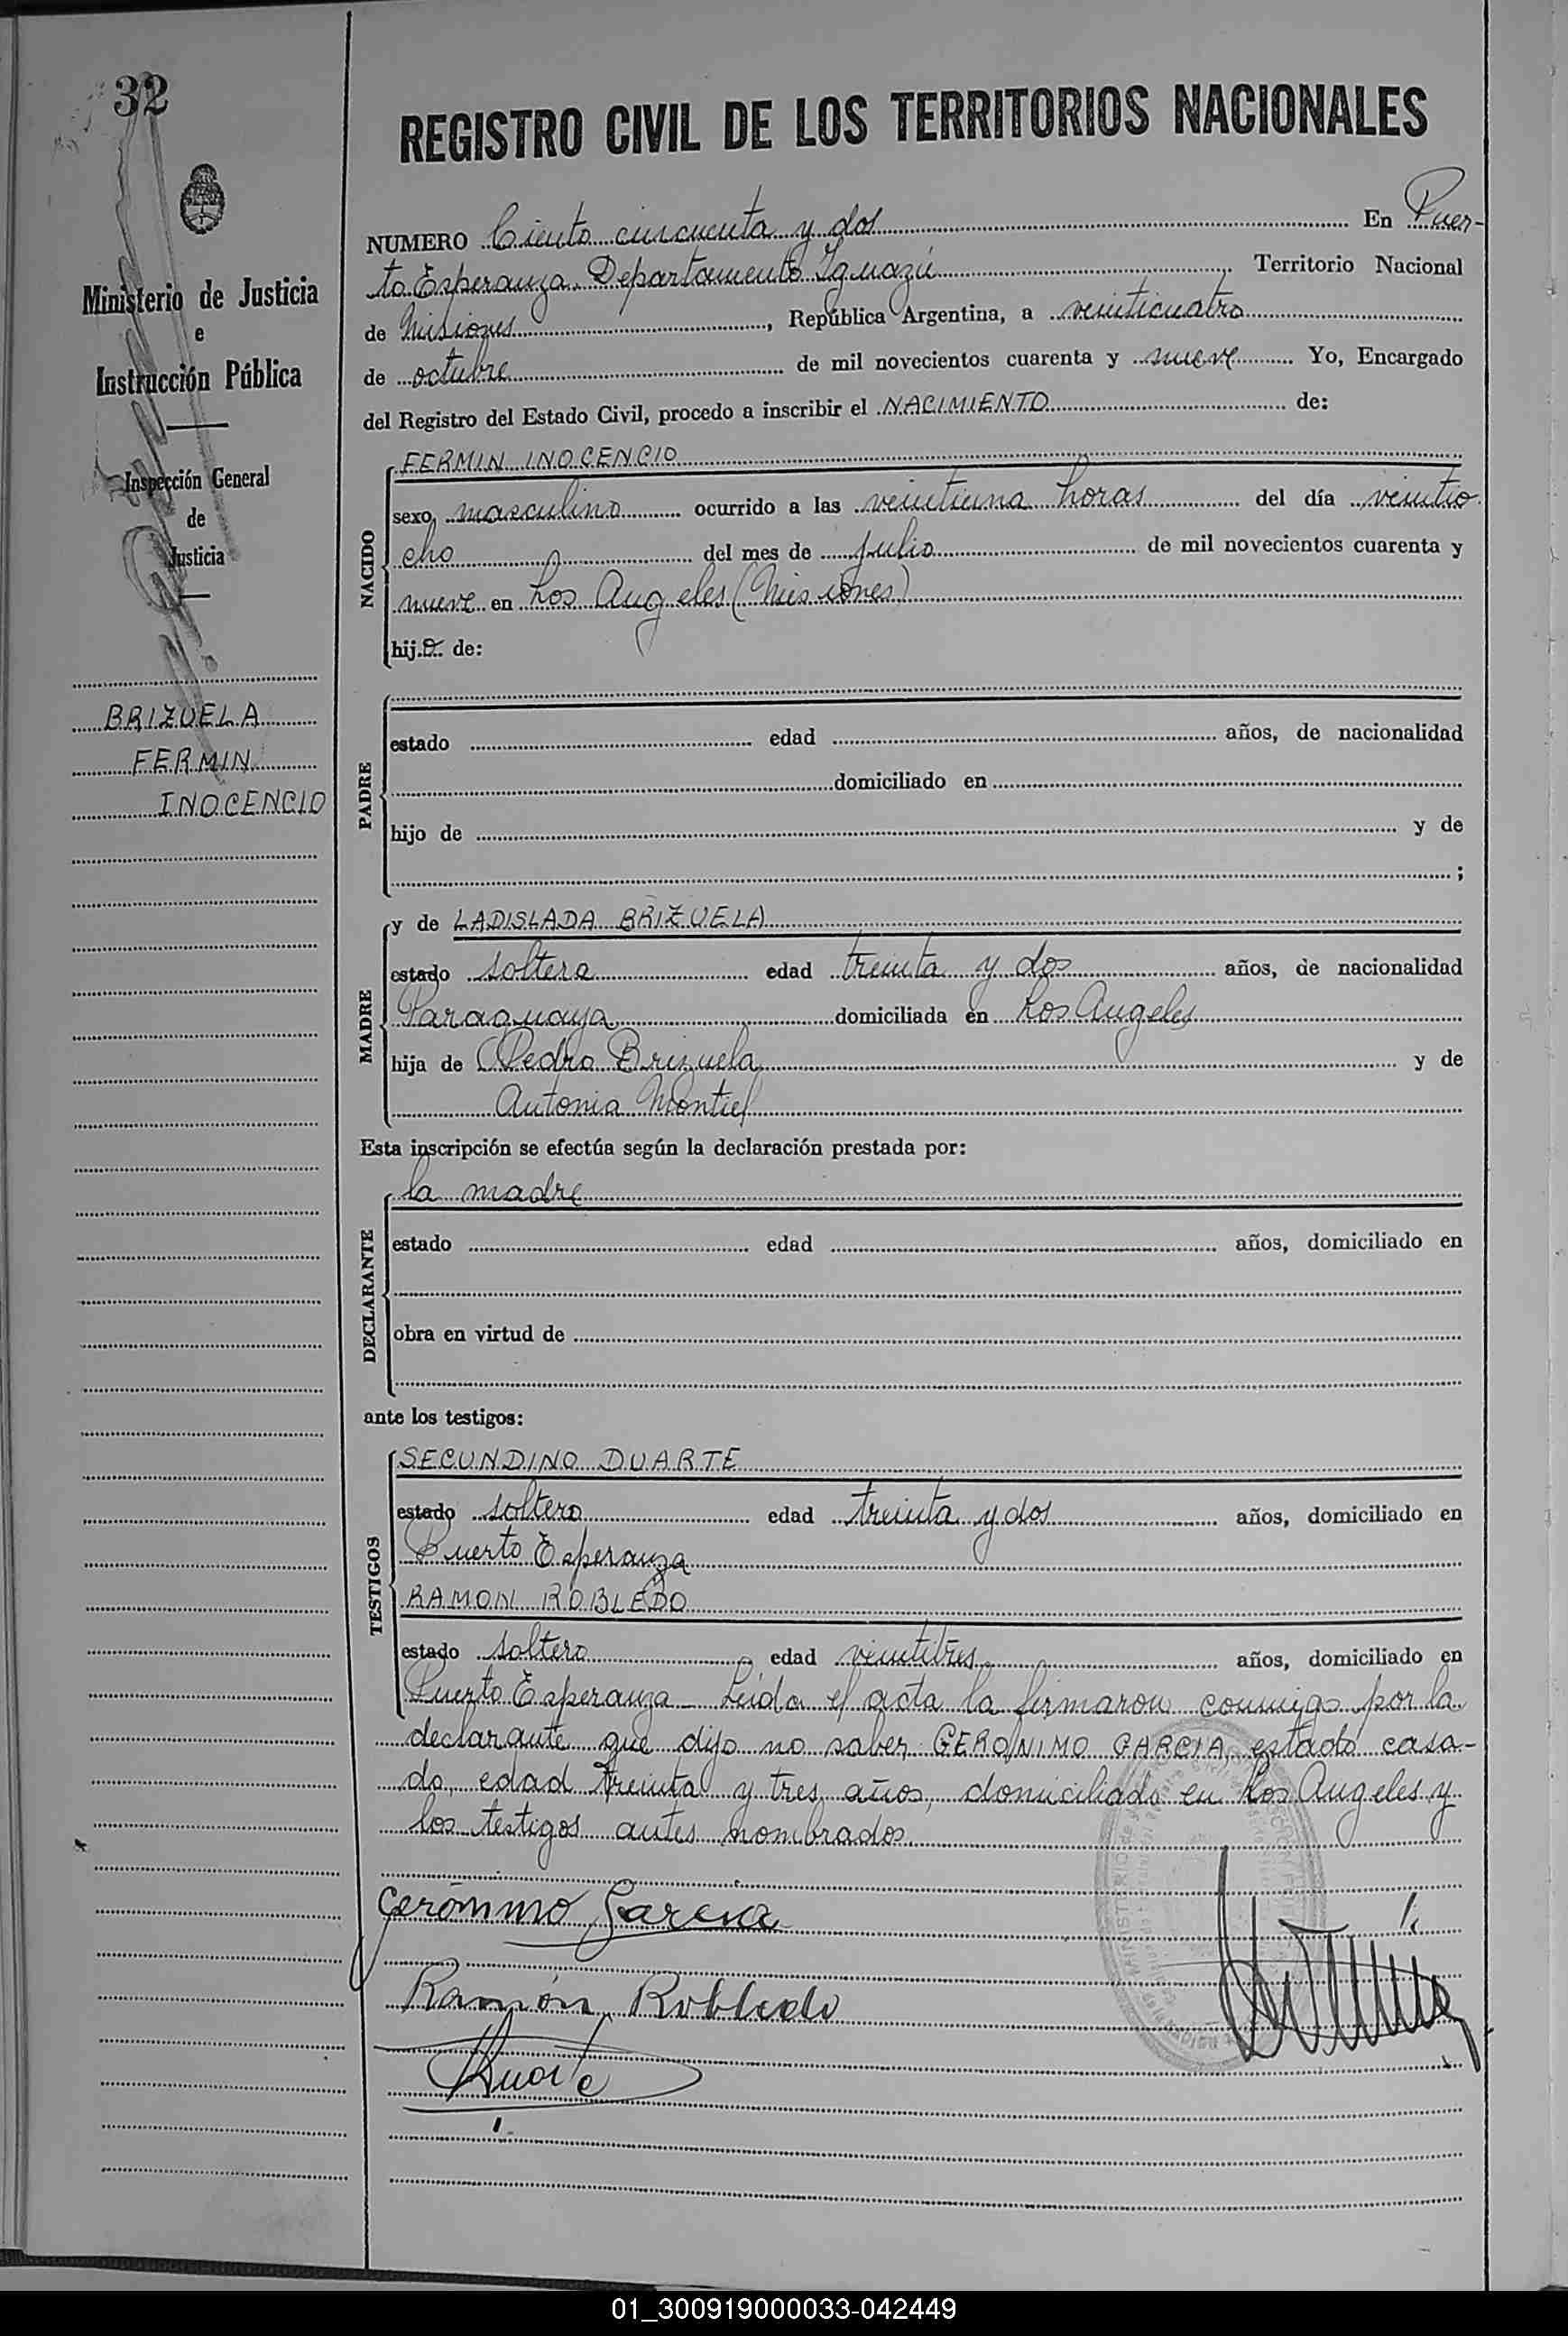 32
REGISTRO CIVIL DE LOS TERRITORIOS NACIONALES
Ministerio de Justicia
e
Instrucción Pública
Inspección General
de
Justicia
BRIZUELA
FERMIN
INOCENCIO
NUMERO Ciento cincuenta y dos En Puer-
to Esperanza Departamento Iguazú, Territorio Nacional
de Misiones, República Argentina, a veinticuatro
de octubre de mil novecientos cuarenta y nueve Yo, Encargado
del Registro del Estado Civil, procedo a inscribir el NACIMIENTO de:
NACIDO
FERMIN INOCENCIO
sexo masculino ocurrido a las veintiuna horas del día veintio
cho del mes de julio de mil novecientos cuarenta y
nueve en Los Angeles (Misiones)
hijo de:
PADRE
estado edad años, de nacionalidad
domiciliado en
hijo de y de
;
MADRE
y de LADISLADA BRIZUELA
estado soltera edad treinta y dos años, de nacionalidad
Paraguaya domiciliada en Los Angeles
hija de Pedro Brizuela y de
Antonia Montiel
Esta inscripción se efectúa según la declaración prestada por:
DECLARANTE
la madre
estado edad años, domiciliado en
obra en virtud de
ante los testigos:
TESTIGOS
SECUNDINO DUARTE
estado soltero edad treinta y dos años, domiciliado en
Puerto Esperanza
RAMON ROBLEDO
estado soltero edad veintitres años, domiciliado en
Puerto Esperanza - Leida el acta la firmaron conmigo por la
declarante que dijo no saber GERONIMO GARCIA, estado casa-
do, edad treinta y tres años, domiciliado en Los Angeles y
los testigos antes nombrados.
Gerónimo Garcia
Ramón Robledo
Duarte
01_300919000033-042449